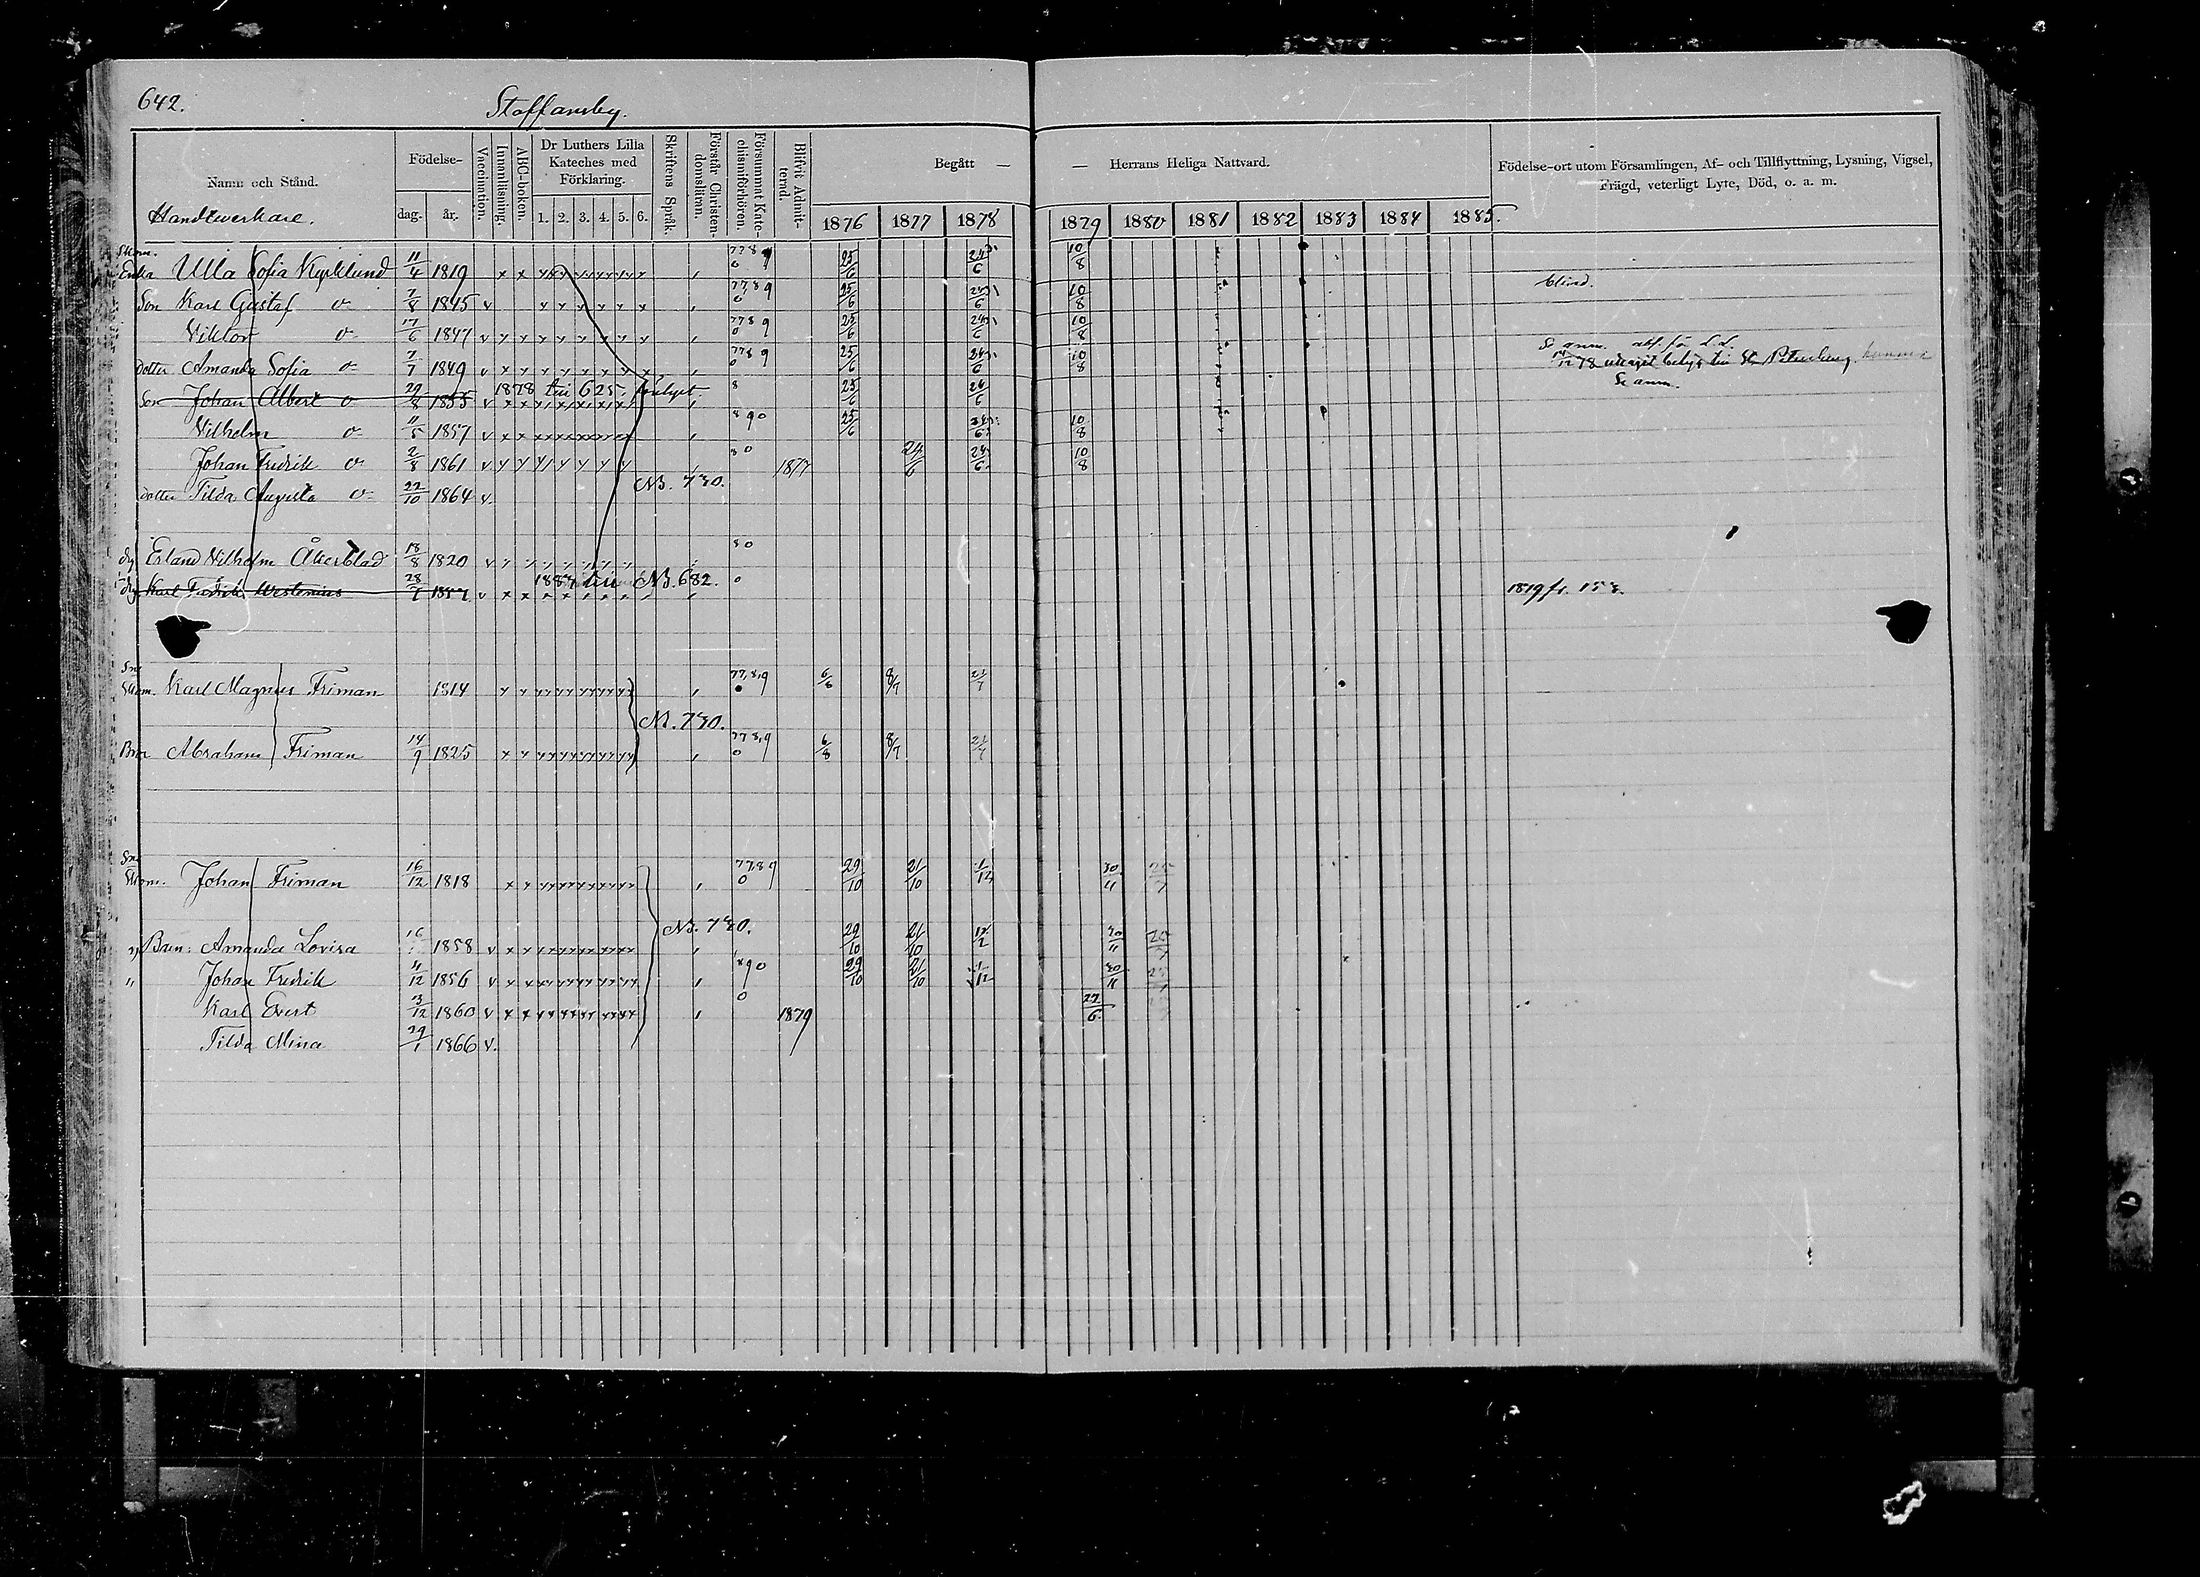 642.
Staffansby.
Namn och Stånd.
Handtverkare.
Födelse-
dag. år.
Vaccination.
Innanläsning.
ABC-boken.
Dr Luthers Lilla Kateches med Förklaring.
1. 2. 3. 4. 5. 6.
Skriftens Språk.
Förstår Christendomsläran.
Försummat Katechismiförhören.
Blifvit Admitterad.
Begått —
1876 1877 1878
— Herrans Heliga Nattvard.
1879 1880 1881 1882 1883 1884 1885.
Födelse-ort utom Församlingen, Af- och Tillflyttning, Lysning, Vigsel,
Frägd, veterligt Lyte, Död, o. a. m.
Skom.
Enka Ulla Sofia Kyrklund 11/4 1819 x x 77 8 9 0 25/6 24/6 10/8
Son Karl Gustaf o 7/8 1845 v 77 8 9 0 25/6 24/6 10/8 blind.
Viktor o 17/6 1847 v 77 8 9 0 25/6 24/6 10/8
Dotter Amanda Sofia o 7/7 1849 v 77 8 9 0 25/6 24/6 10/8 Se anm.
Son Johan Albert o 29/8 1855 v 1878 till 625. 8 25/6 24/6 Se anm.
Vilhelm o 11/5 1857 v 8 9 0 25/6 24/6 10/8
Johan Fredrik o 2/8 1861 v 1877 24/6 24/6 10/8
Dotter Tilda Augusta o 22/10 1864 v. N3. 730.
Erland Vilhelm Åkerblad 18/8 1820 v 8 0
Karl Fredrik Westenius 28/7 1857 v N3. 682. 0 1819 fr. 153.
Sne
Skom. Karl Magnus Friman 1814 77,8,9 6/8 8/7 21/7
730.
Bror Abraham Friman 14/9 1825 77 8,9 0 6/8 8/7 21/7
Sne
Skom. Johan Friman 16/12 1818 77,8 9 0 29/10 21/10 1/12 30/11
N3. 730.
Barn: Amanda Lovisa 1858 v 29/10 21/10 30/11
" Johan Fredrik 11/12 1856 v 8 9 0 29/10 21/10 1/12 30/11
Karl Evert 13/12 1860 v 0 1879 22/6
Tilda Mina 29/1 1866 v.